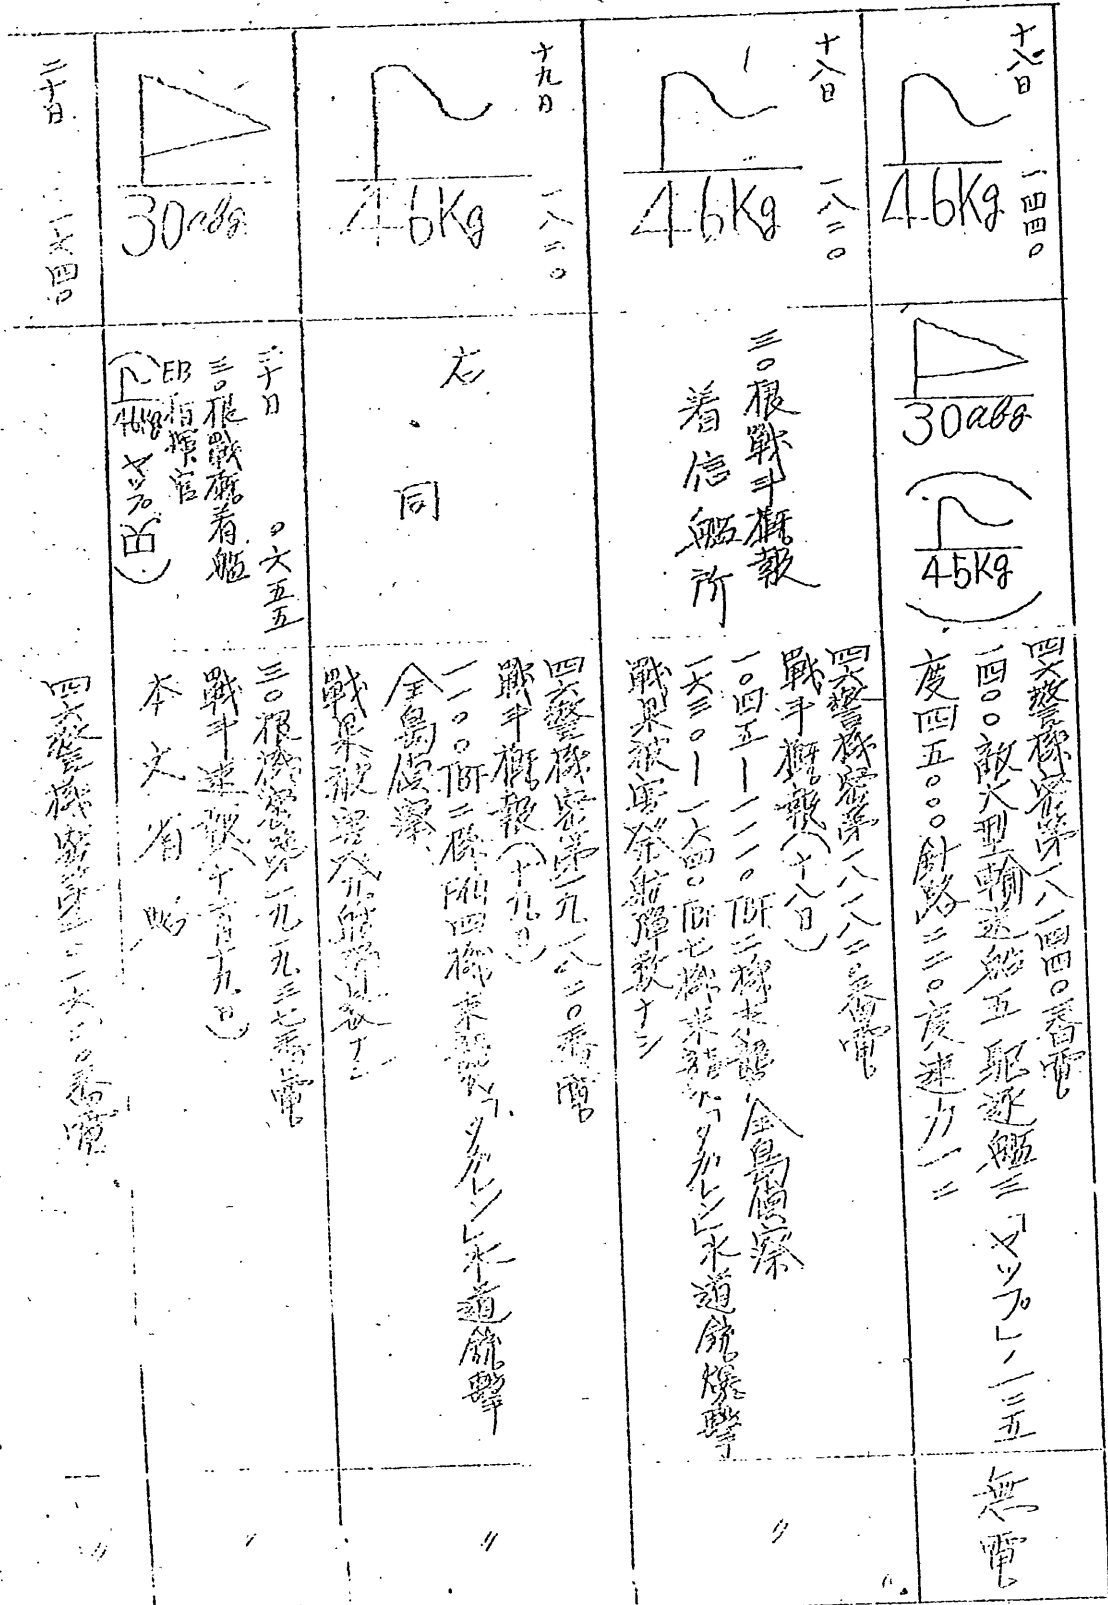 十八日 一四四〇
46Kg
30abg
45Kg
四六警機密第一八一四四〇番電
一四〇〇敵大型輸送船五 駆逐艦三「ヤップ」ノ一三五
度四五〇〇〇針路二二〇度速力一二
無電
十八日 一八二〇
46Kg
三〇根戰斗概報
着信艦所
四六警機密第一八一八二〇番電
戰斗概報(十八日)
一〇四五ー一一一〇TBF二機来襲 全島偵察
一六三〇ー一六四〇TBF七機来襲「タガレン」水道銃爆撃
戰果被害發射弾数ナシ
〃
十九日 一八二〇
46Kg
右同
四六警機密第一九一八二〇番電
戰斗概報(十九日)
一一〇〇TBF二機F4U四機来襲「タガレン」水道銃撃
全島偵察
戰果被害發射弾数ナシ
〃
30abg
二十日 〇六五五
三〇根戰概着艦
EB指揮官
46Kg ヤップ
三〇根機密第一九一九三七番電
戰斗速報(十一月十九日)
本文省略
〃
二十日 一六四〇
四六警機密第二〇一六二〇番電
〃